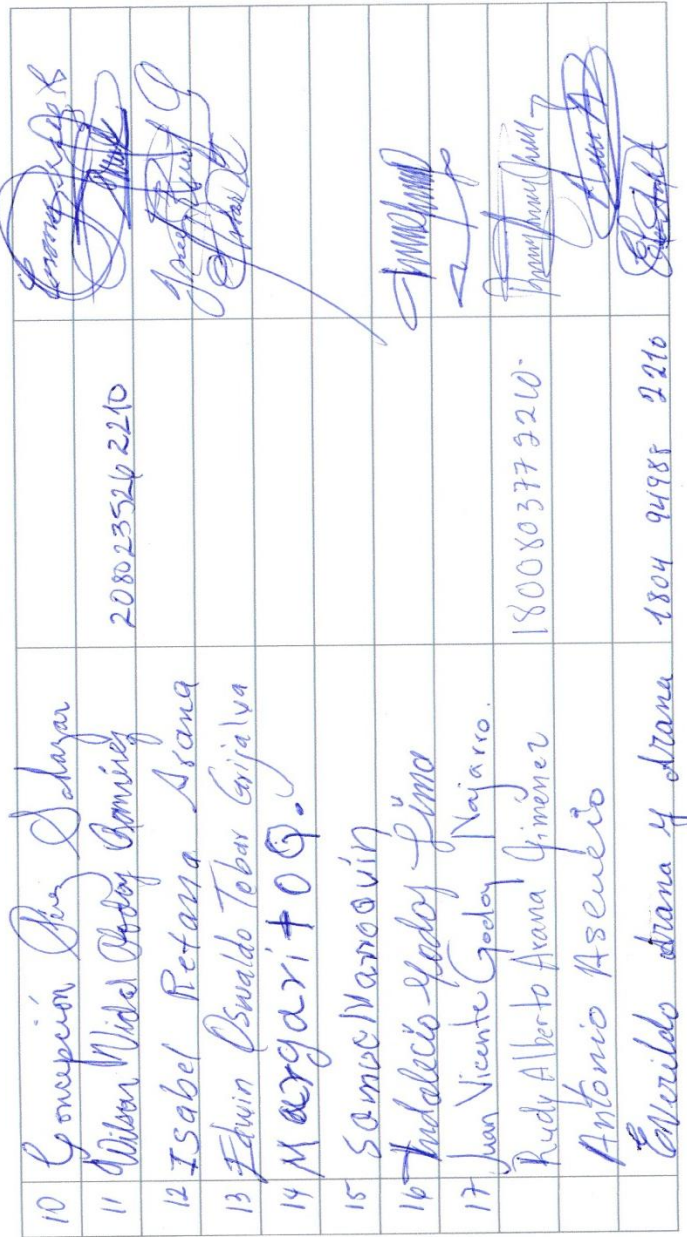 10 Concepción Pérez Salazar
11 Wilson Vidal Godoy Ramírez 2080235262210
12 Isabel Retana Arana
13 Edwin Oswaldo Tobar Grijalva
14 Margarito G.
15 Samuel Marroquín
16 Indalecio Godoy Lima
17 Juan Vicente Godoy Najarro.
Rudy Alberto Arana Giménez 1800803772210.
Antonio Asencio
Everildo Arana y Arana 1804 94988 2210